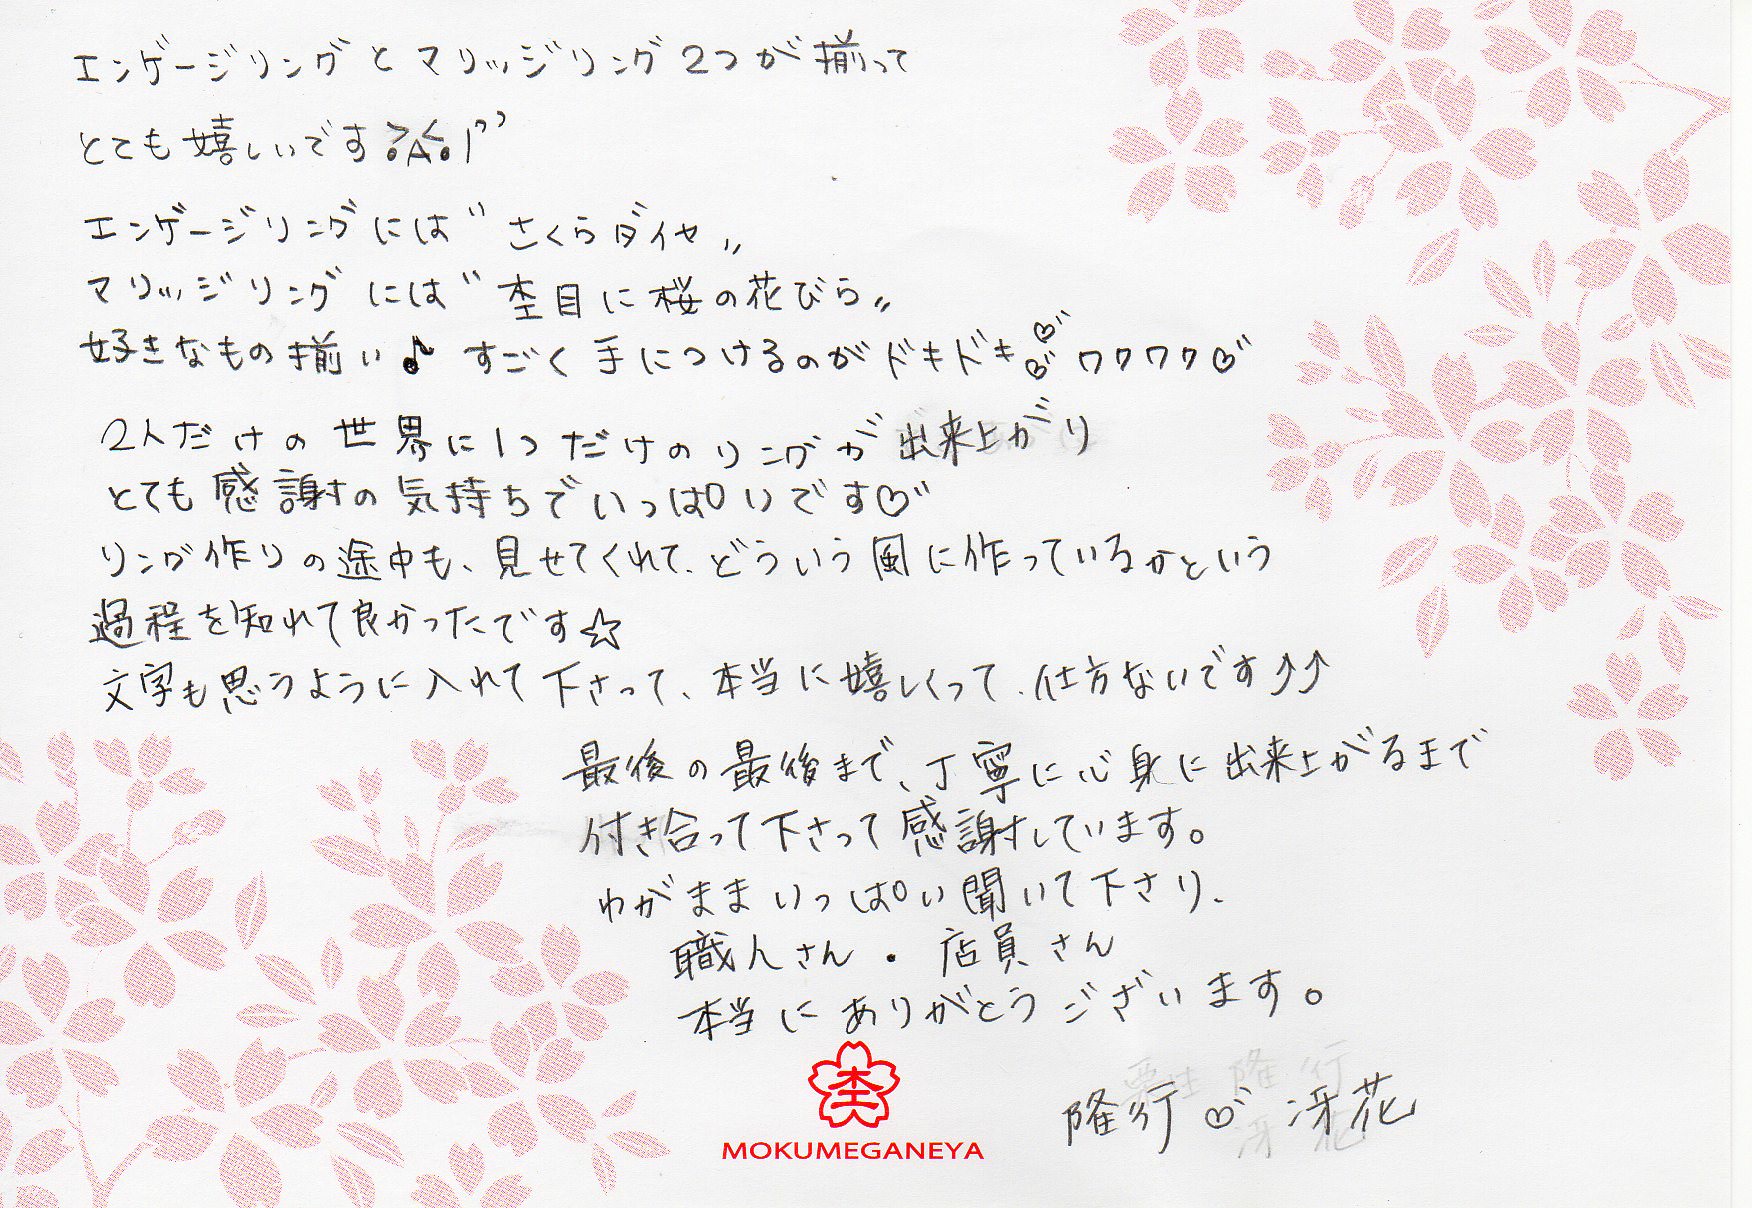 エンゲージリングとマリッジリング2つが揃って
とても嬉しいです
エンゲージリングには〝さくらダイヤ〟
マリッジリングには〝杢目に桜の花びら〟
好きなもの揃い♪ すごく手につけるのがドキドキ♡ワクワク♡
2人だけの世界に1つだけのリングが出来上がり
とても感謝の気持ちでいっぱいです♡
リング作りの途中も、見せてくれて、どういう風に作っているかという
過程を知れて良かったです☆
文字も思うように入れて下さって、本当に嬉しくって、仕方ないです↑↑
最後の最後まで、丁寧に心身に出来上がるまで
付き合って下さって感謝しています。
わがままいっぱい聞いて下さり、
職人さん・店員さん
本当にありがとうございます。
隆行♡冴花
杢
MOKUMEGANEYA